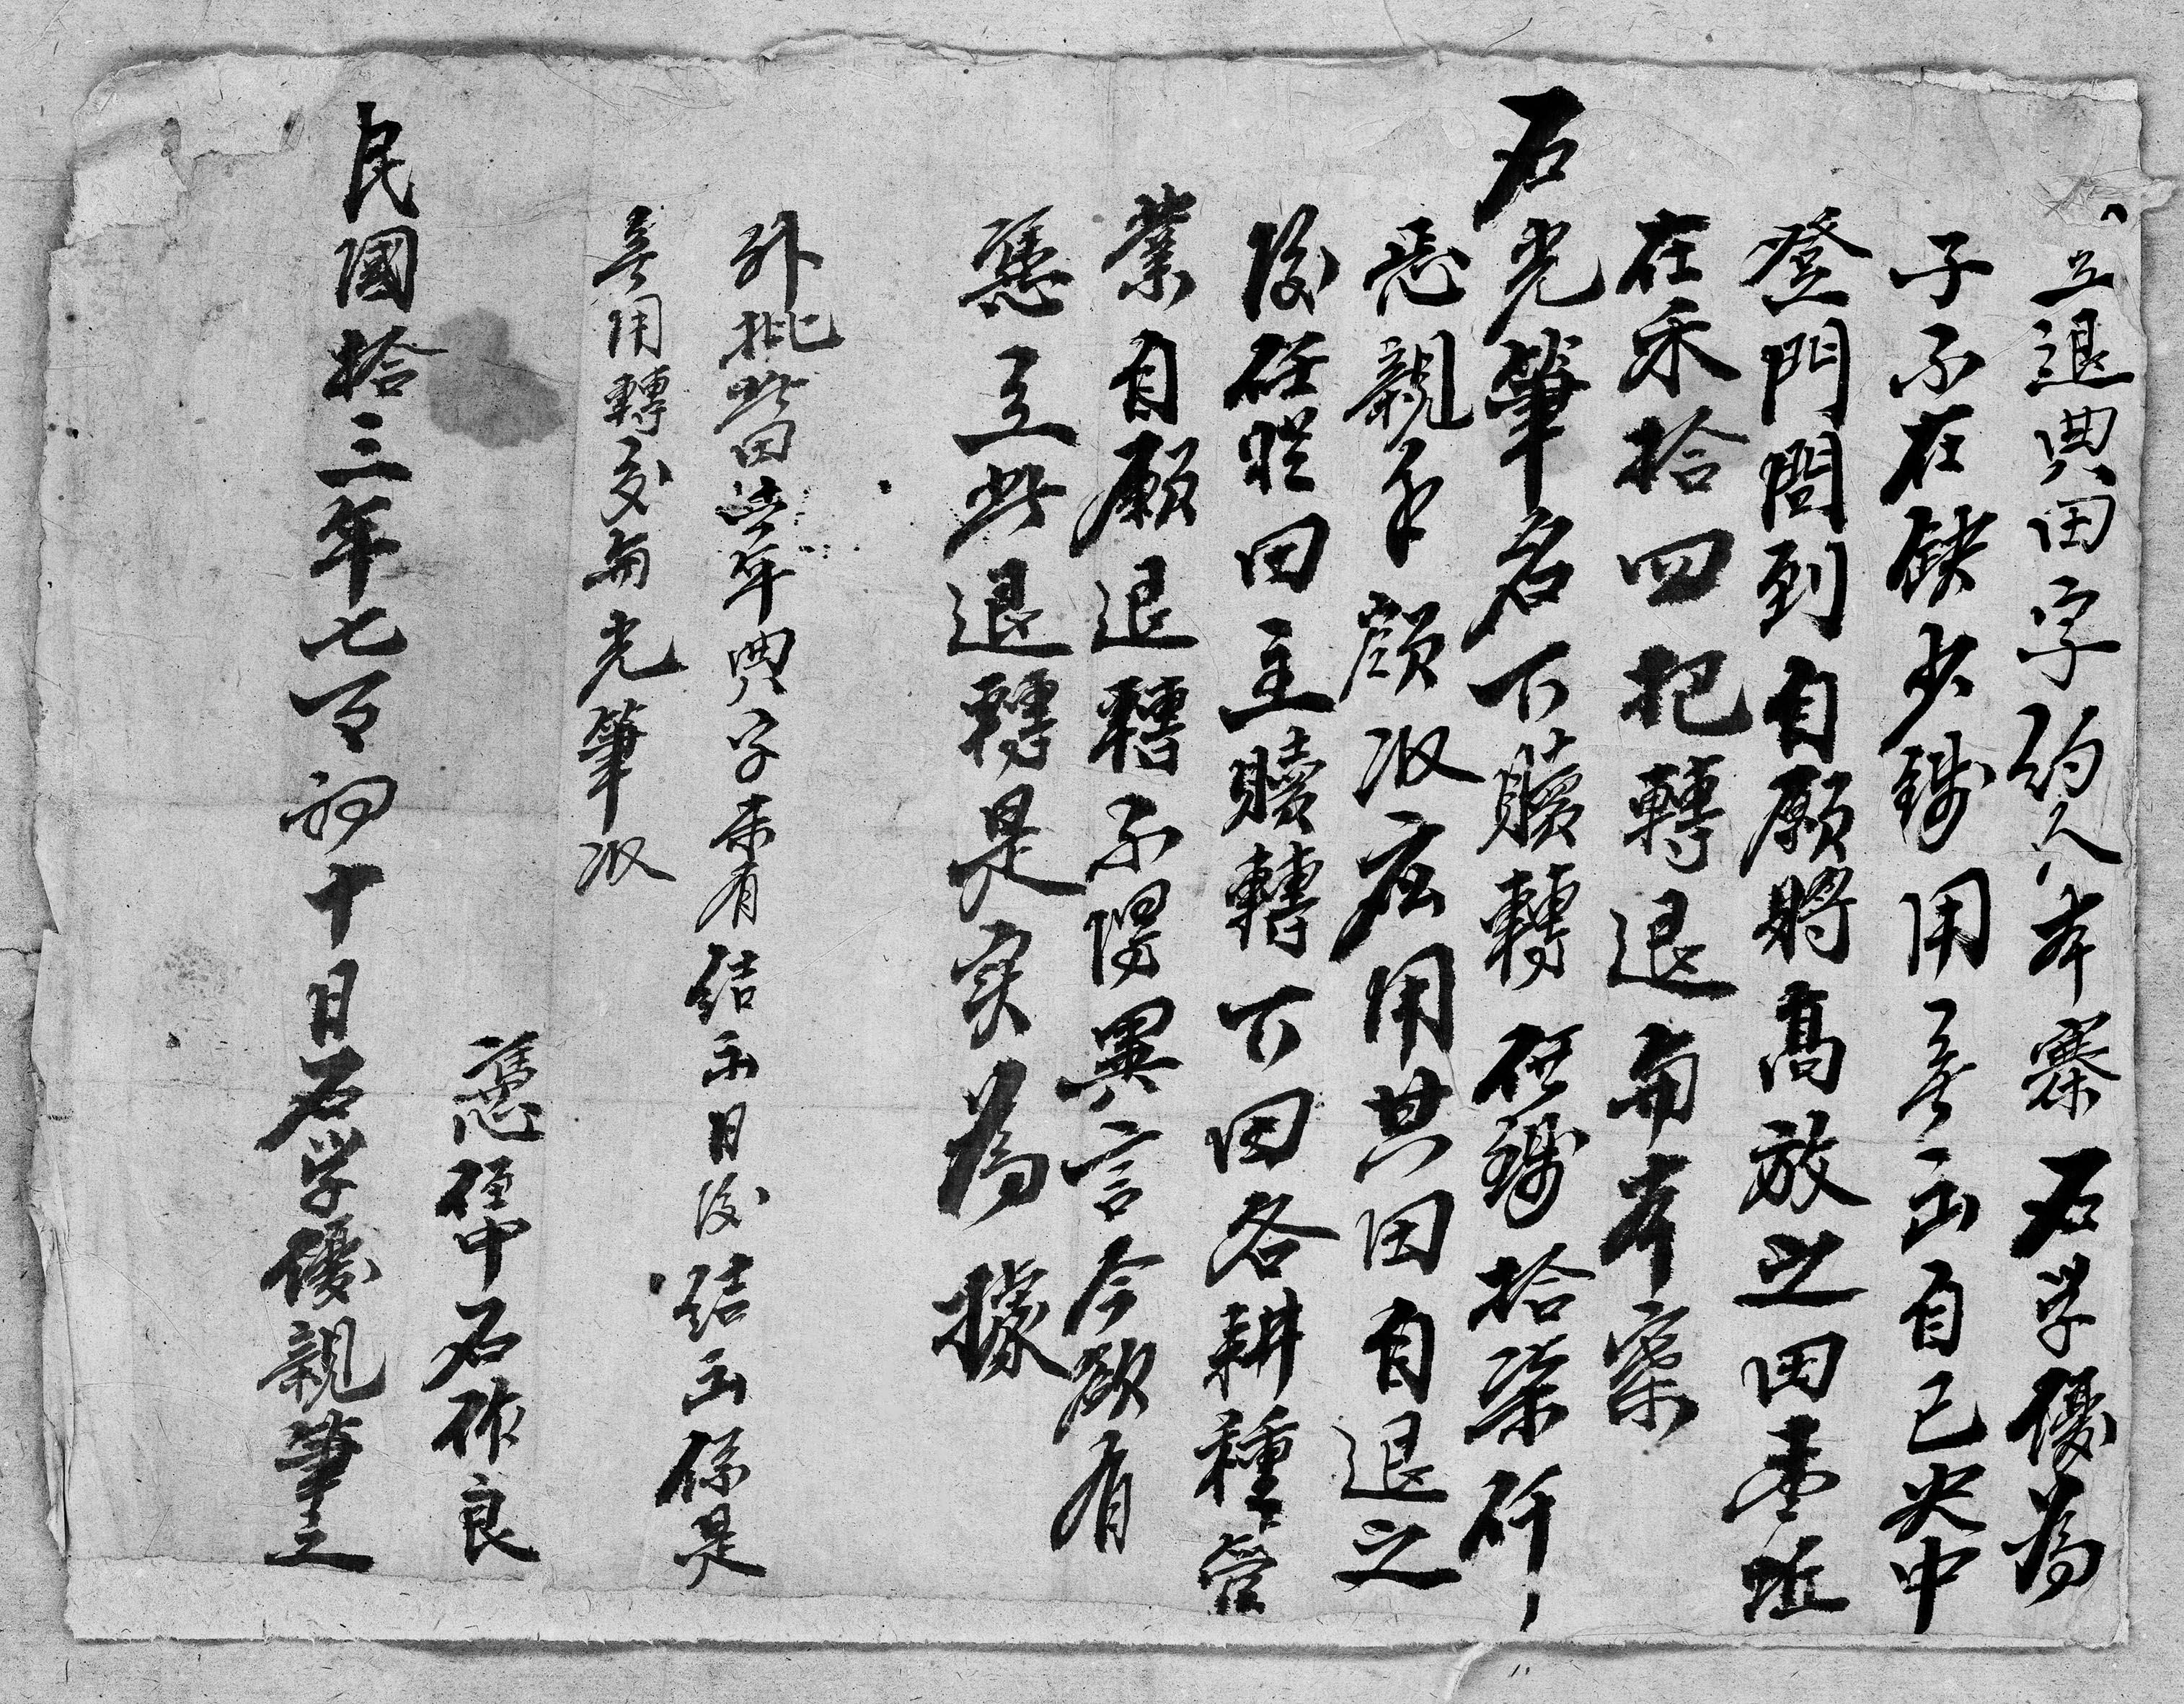 立退典田字約人本寨石学優為
子不在缺少錢用無出自己央中
登門問到自願將高放之田壹坵
在禾拾四把轉退與本寨
石光筆名下贖轉任錢拾柒仟
親手領收应用其田自退之
後任從田主贖轉下田各耕種管
業自願退轉不得異言今欲有
憑立此退轉是实為據
外批此田此年典字未有結出日後結出係是
無用轉交與光筆收
憑中石作良
民國拾三年七月初十日石学優親筆立